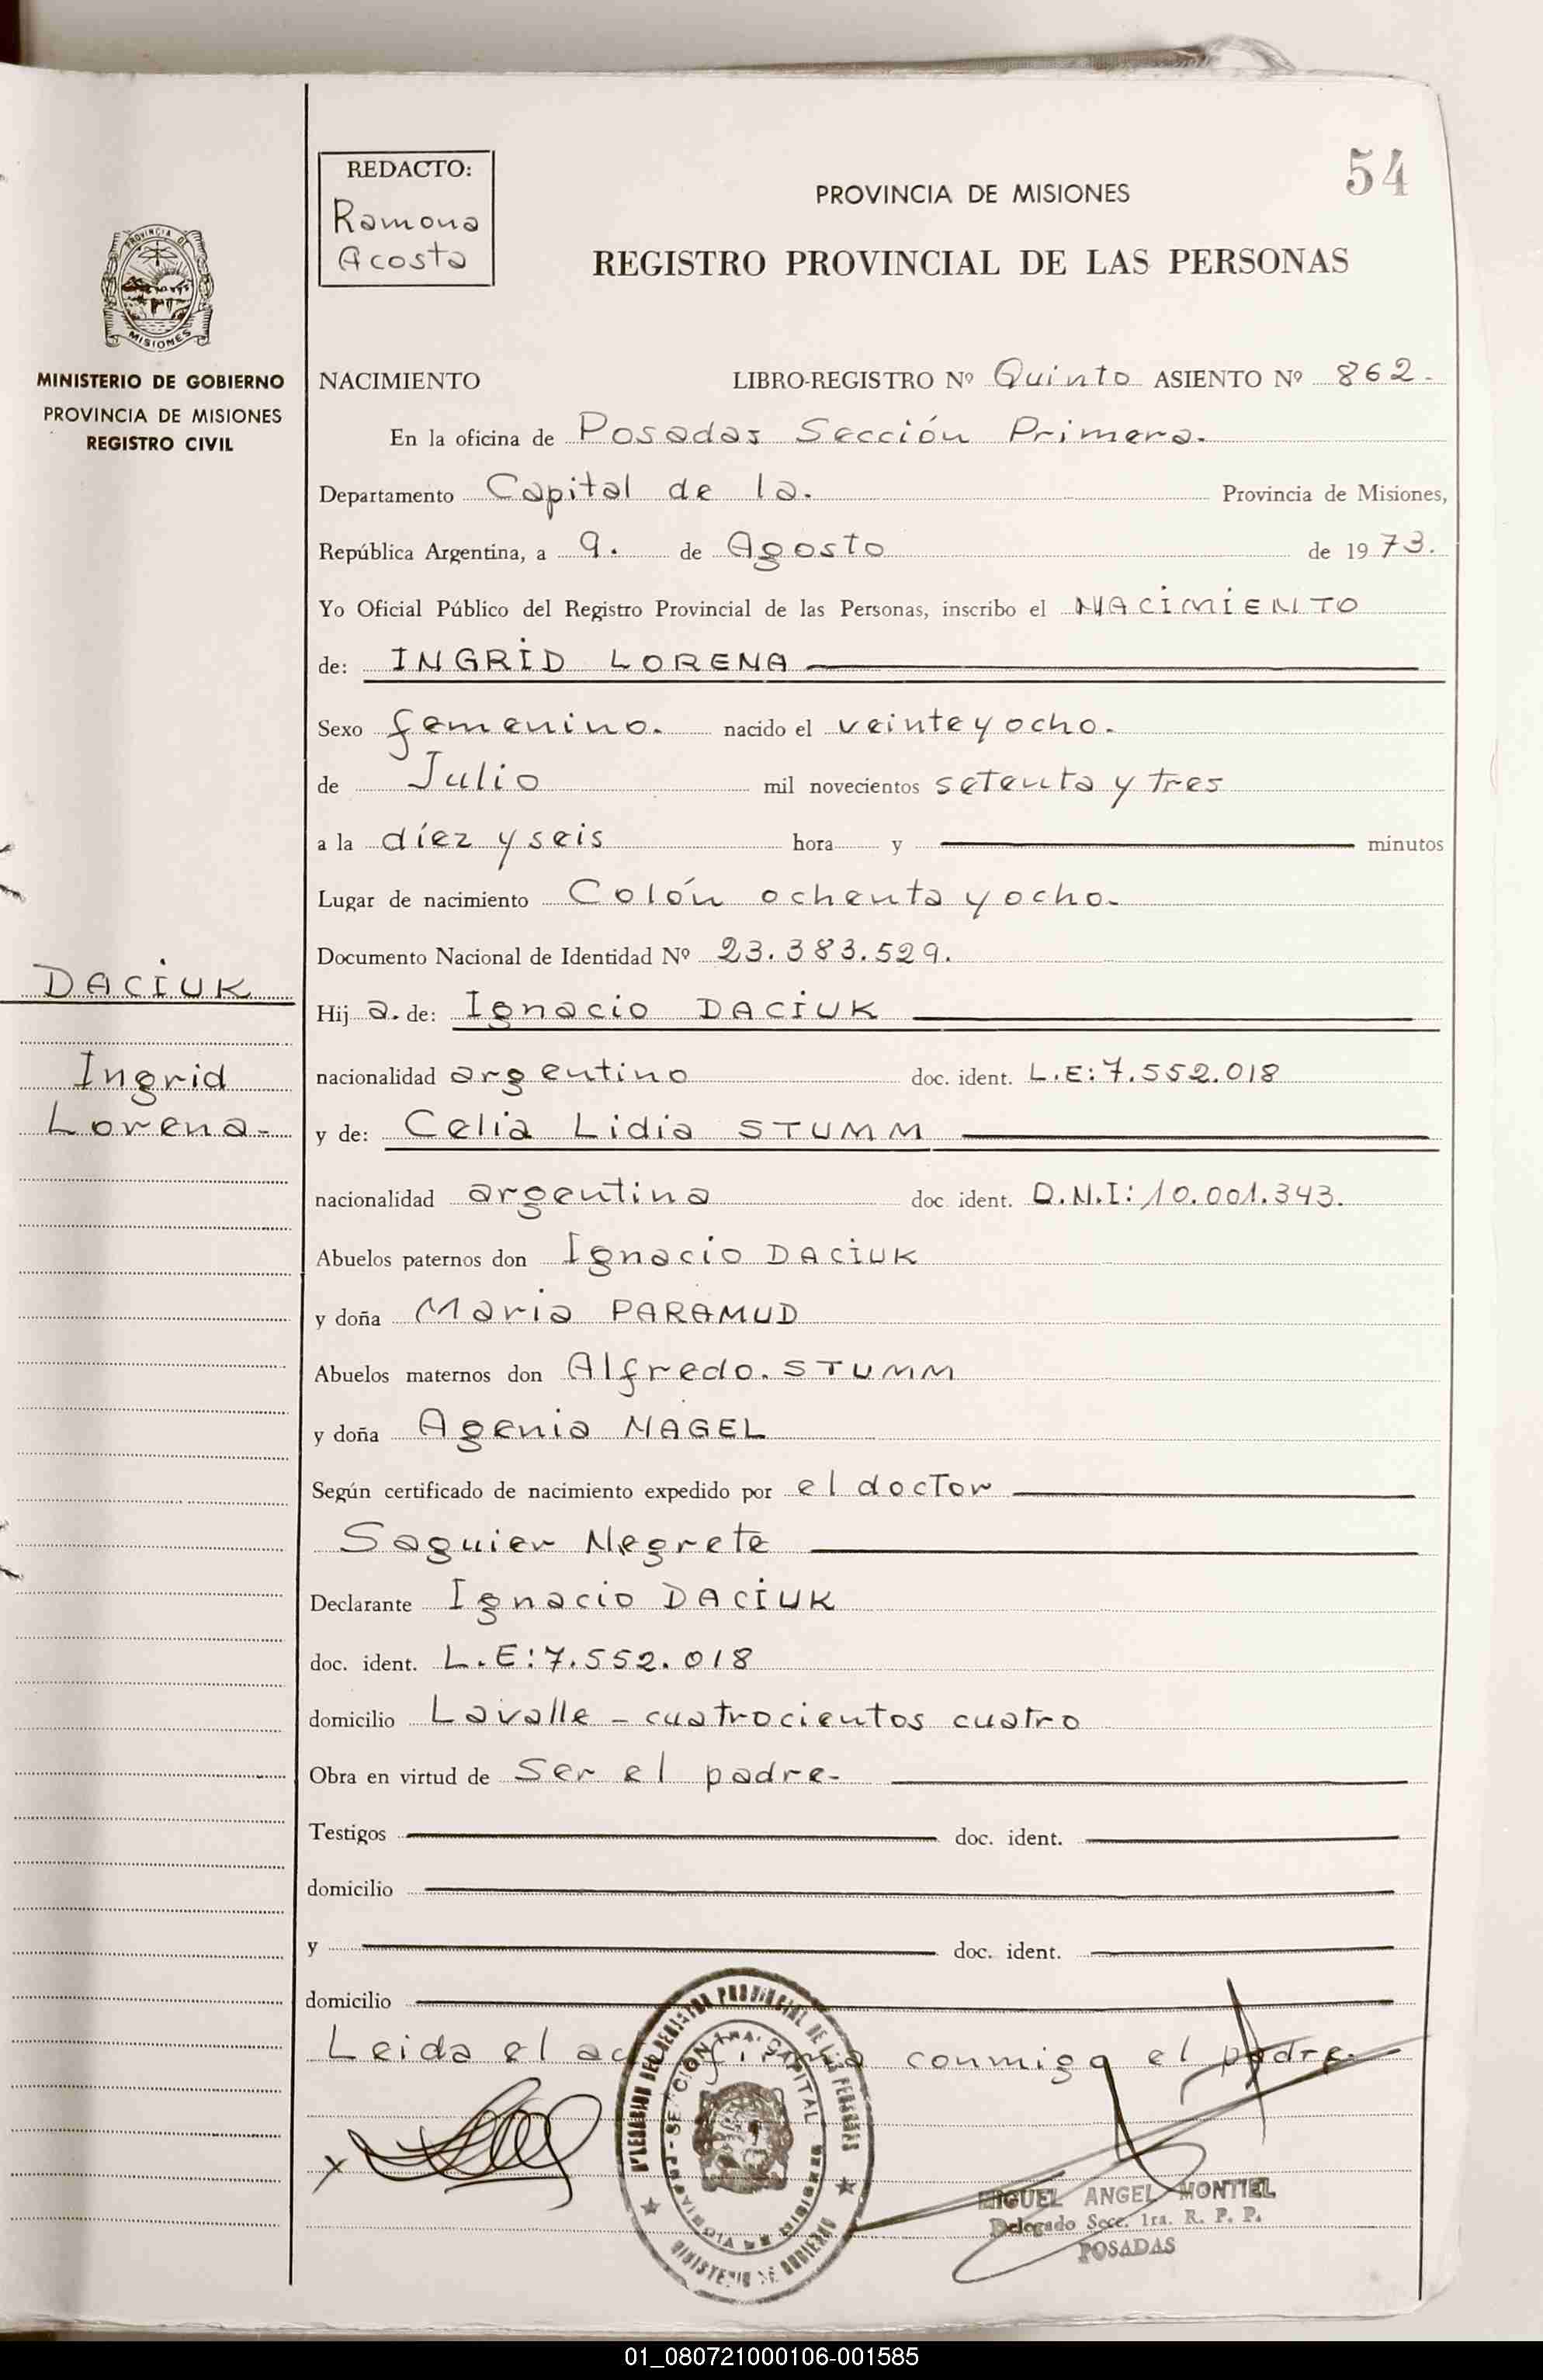 54
REDACTO:
Ramona
Acosta
PROVINCIA DE MISIONES
REGISTRO PROVINCIAL DE LAS PERSONAS
PROVINCIA DE
MISIONES
MINISTERIO DE GOBIERNO
PROVINCIA DE MISIONES
REGISTRO CIVIL
NACIMIENTO LIBRO-REGISTRO Nº Quinto ASIENTO Nº 862.
En la oficina de Posadas Sección Primera.
Departamento Capital de la. Provincia de Misiones,
República Argentina, a 9. de Agosto de 1973.
Yo Oficial Público del Registro Provincial de las Personas, inscribo el NACIMIENTO
de: INGRID LORENA
Sexo femenino. nacido el veinte y ocho.
de Julio mil novecientos setenta y tres
a la diez y seis hora y minutos
Lugar de nacimiento Colón ochenta y ocho.
Documento Nacional de Identidad Nº 23.383.529.
DACIUK
Ingrid
Lorena-
Hij a. de: Ignacio DACIUK
nacionalidad argentino doc. ident. L.E:7.552.018
y de: Celia Lidia STUMM
nacionalidad argentina doc. ident. D.N.I:10.001.343.
Abuelos paternos don Ignacio DACIUK
y doña Maria PARAMUD
Abuelos maternos don Alfredo. STUMM
y doña Agenia NAGEL
Según certificado de nacimiento expedido por el doctor
Saguier Negrete
Declarante Ignacio DACIUK
doc. ident. L.E:7.552.018
domicilio Lavalle - cuatrocientos cuatro
Obra en virtud de Ser el padre-
Testigos doc. ident.
domicilio
y doc. ident.
domicilio
Leida el acta firma conmigo el padre.
REGISTRO PROVINCIAL DE LAS PERSONAS
SECCION 1RA. CAPITAL
PROVINCIA DE MISIONES
MINISTERIO DE GOBIERNO
MIGUEL ANGEL MONTIEL
Delegado Secc. 1ra. R. P. P.
POSADAS
01_080721000106-001585